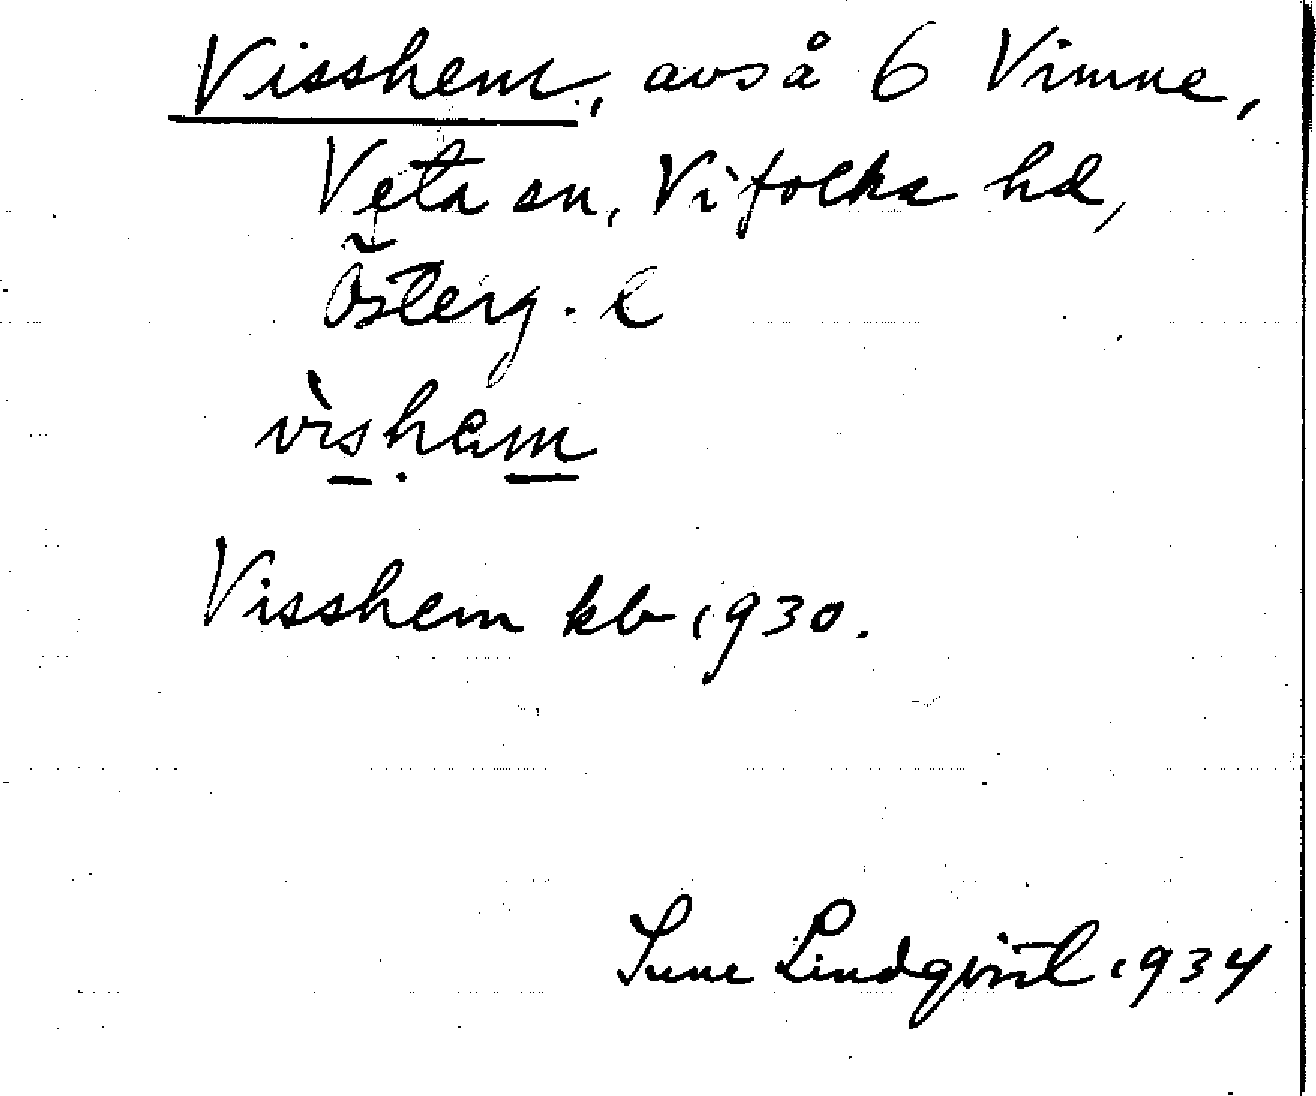 Visshem, avs å 6 Vimne,
Veta sn, Vifolka hd,
Österg. l
vìshem
Visshem kb 1930.
Sune Lindqvist 1934